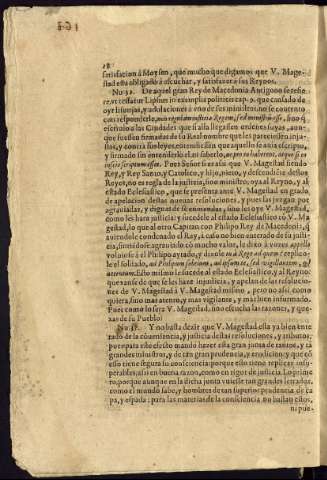 satisfacion à Moysen, que mucho que digamos que V. Mages-
tad està obligado à escuchar, y satisfazer à sus Reynos.
No 32. De aquel gran Rey de Macedonia Antigono se refie-
re, ut testatur Lipsius in exemplis politicis cap. 9. que cansado de
oyr lastimas, y violaciones à uno de sus ministros, no se contentò
con responderle,
escrivio à las Ciudades que si alla llegassen ordenes suyas, aun-
que fuessen firmadas de su Real nombre que les pareciessen injus-
tas, y contra sus leyes, entendiessen que aquello se avia escripto,
y firmado sin entenderlo el ni saberlo,
Pues Señor si es assi que V. Magestad siendo
Rey, y Rey Santo, y Catolico, y hijo, nieto, y descendiente destos
Reyes, no es regla de la justicia, sino ministro, oya al Reyno, y al
estado Eclesiastico, que se presenta ante V. Magestad en grado
de apelacion destas nuevas resoluciones, y pues las juzgan por
agraviadas, y dignas de se enmendar, sino las oye V. Magestad,
como les hara justicia: y sucedele al estado Eclesiastico cõ V. Ma-
gestad, lo que al otro Capitan con Philipo Rey de Macedonia, q̃
aviendole condenado el Rey à caso no bien enterado de su justi-
cia, sintiendose agraviado cõ mucho valor, le dixo à voces appello
volviose à el Philipo ayrado, y dixole
el soldado, ad Philipum
attentum. Esto mismo le sucede al estado Eclesiastico, y al Reyno:
que
de V. Magestad à V. Magestad mismo, pero no assi como
quiera, sino mas atento, y mas vigilante, y mas bien informado.
Pues como lo sera V. Magestad, sino escucha las razones, y que-
xas de su Pueblo?
No 33. Y no basta dezir que V. Magestad esta ya bien ente-
rado de la circunstancia, y justicia destas resoluciones, y tributos;
pues para este efecto mando hazer esta gran junta de tantos, y tã
grandes ministros, y de tan gran prudencia, y erudicion: y que cõ
esso tiene segura su conciencia: porque esto tiene replicas insu-
perables, assi en buena razon, como en rigor de justicia. Lo prime-
ro, porque aunque en la dicha junta uviesse tan grandes letrados,
como el mundo sabe, y hombres de tan superior prudencia, de ca-
pa, y espada: para las materias de la conciencia no bastan estos,
ni pue-